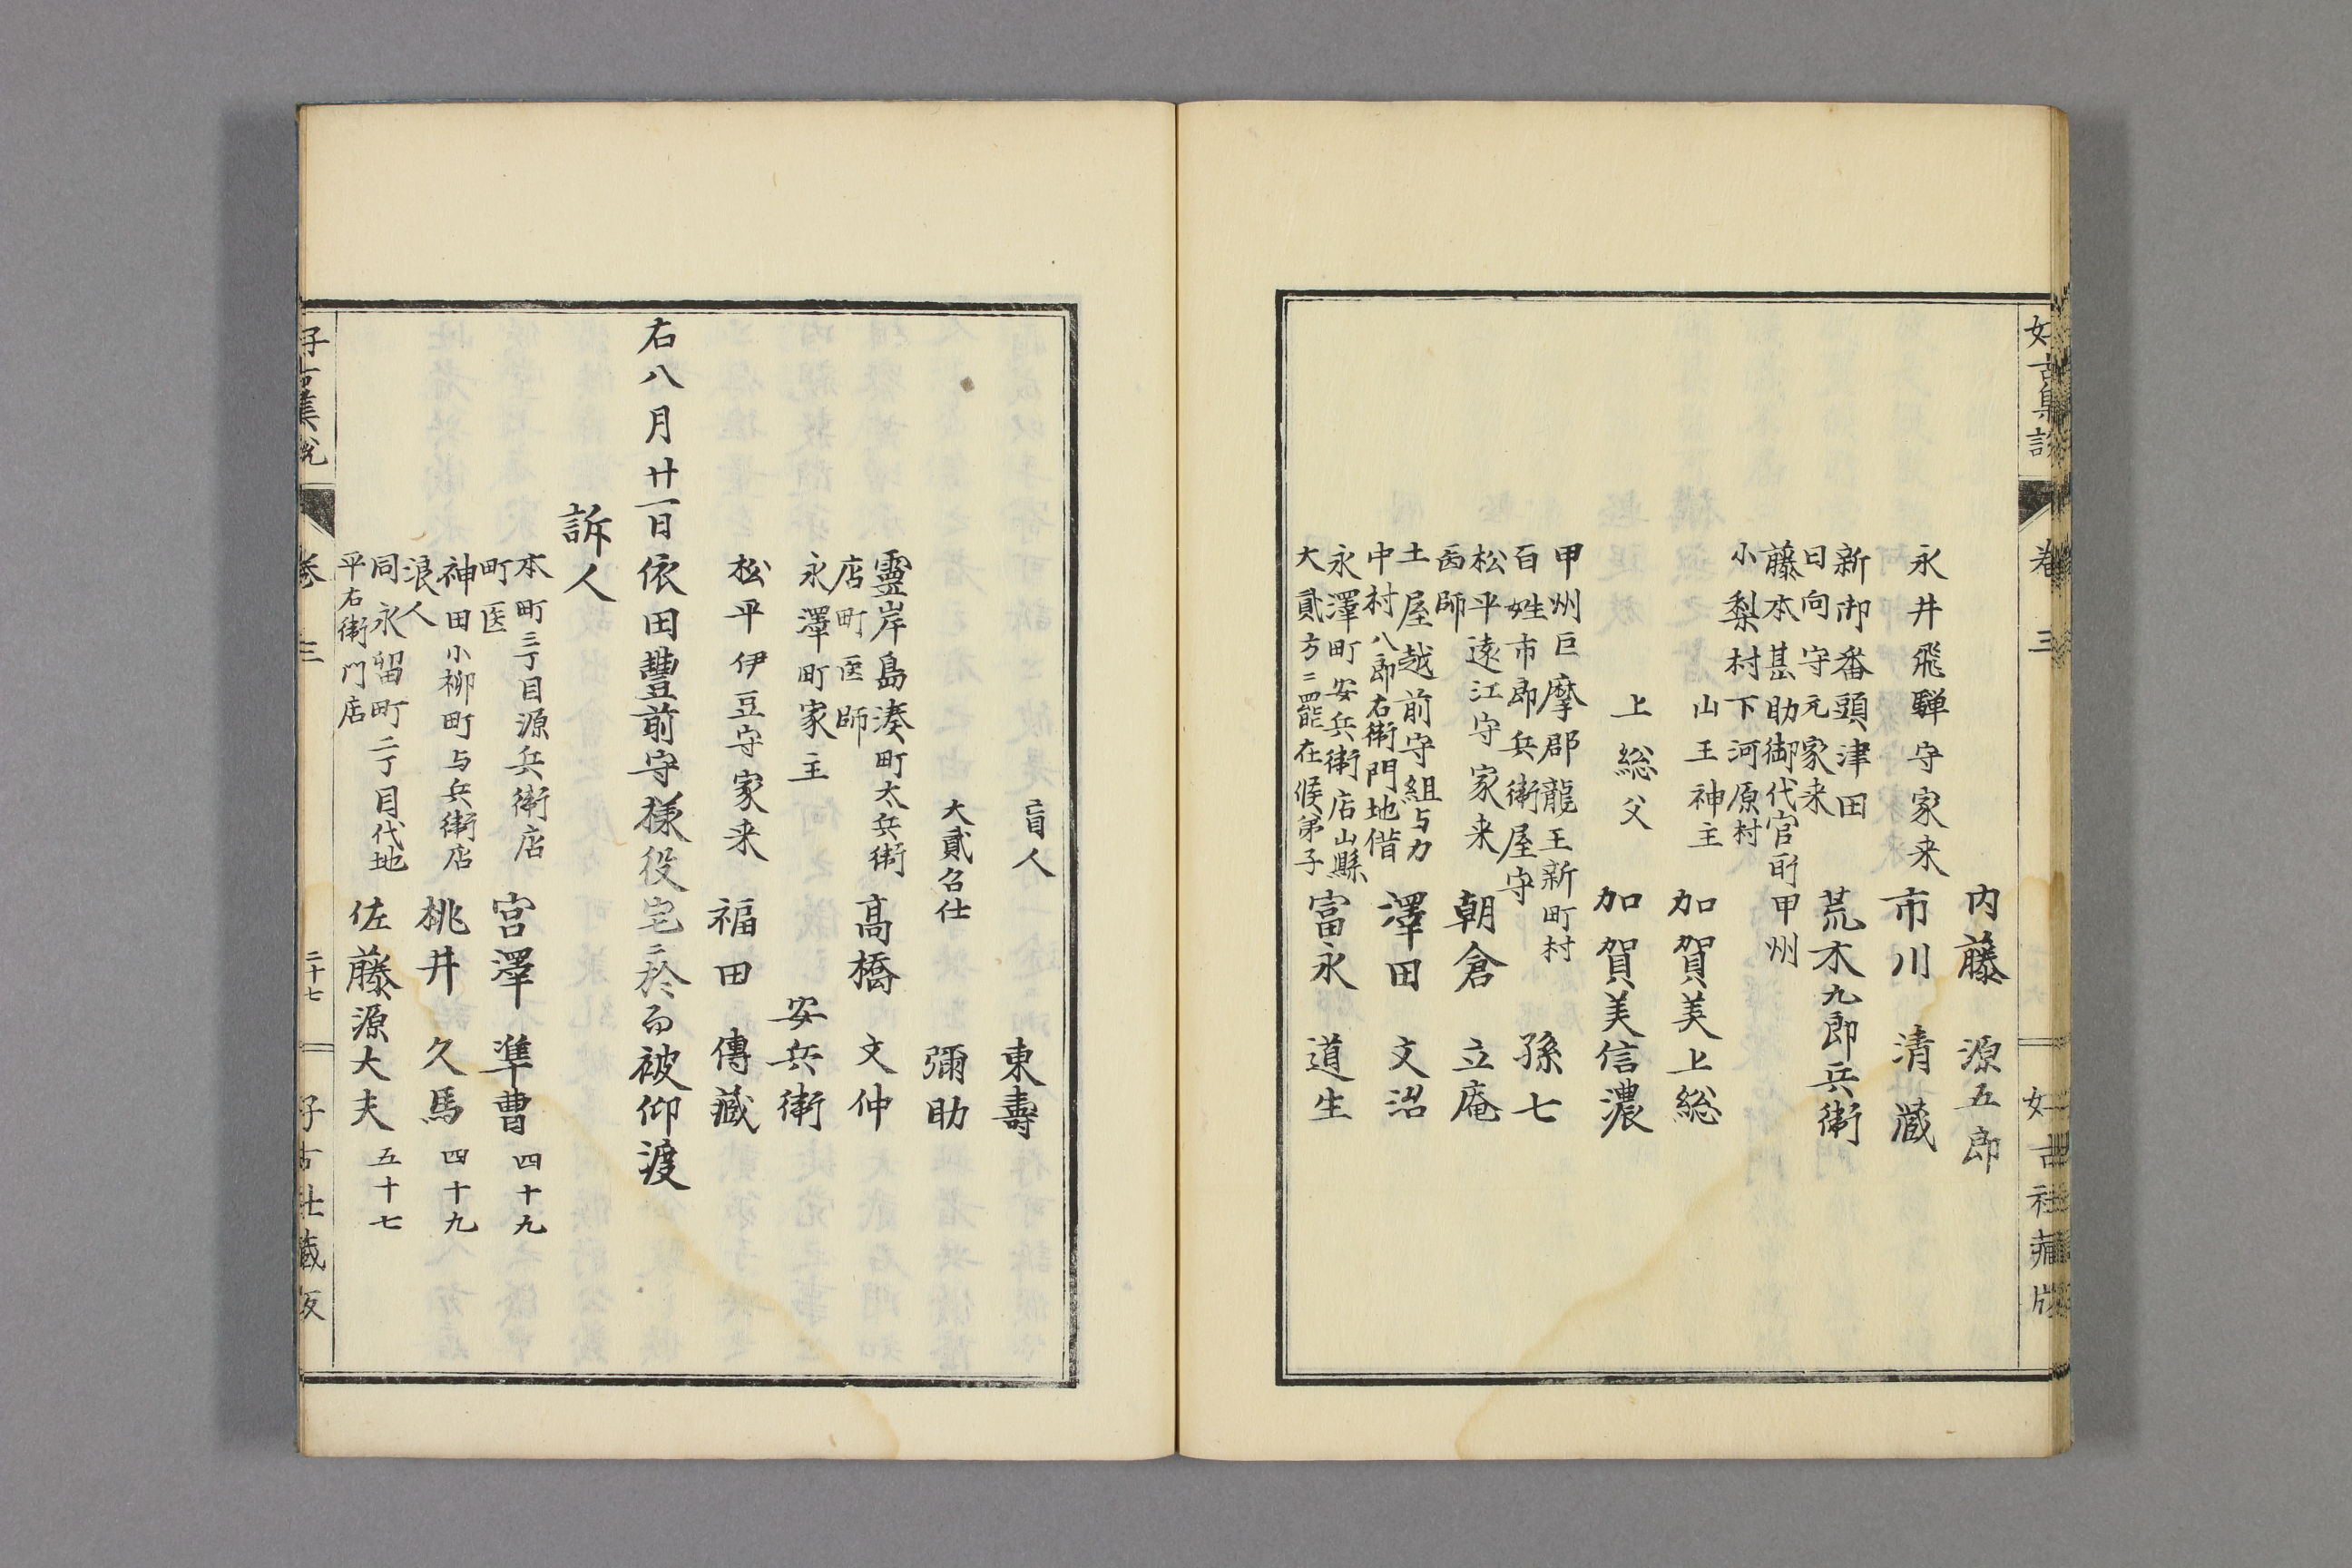 好古集説 巻三 好古社蔵版
内藤 源五郎
永井飛騨守家来 市川 清蔵
新御番頭津田
日向守元家来 荒木九郎兵衛
藤本甚助御代官所甲州
小梨村下河原村
山王神主 加賀美上総
上総父 加賀美信濃
甲州巨摩郡龍王新町村
百姓市郎兵衛屋守 孫七
松平遠江守家来
医師 朝倉 立庵
土屋越前守組与力
中村八郎右衛門地借 澤田 文沼
永澤町安兵衛店山縣
大貳方ニ罷在候弟子 富永 道生
盲人 東壽
大貳召仕 彌助
靈岸島湊町太兵衛
店町医師 髙橋 文仲
永澤町家主 安兵衛
松平伊豆守家来 福田 傳藏
右八月廿一日依田豐前守様役宅ニ於而被仰渡
訴人
本町三丁目源兵衛店
町医 宮澤 準曹 四十九
神田小柳町与兵衛店
浪人 桃井 久馬 四十九
同永留町二丁目代地
平右衛門店 佐藤源大夫 五十七
好古集説 巻三 二十七 好古社蔵版